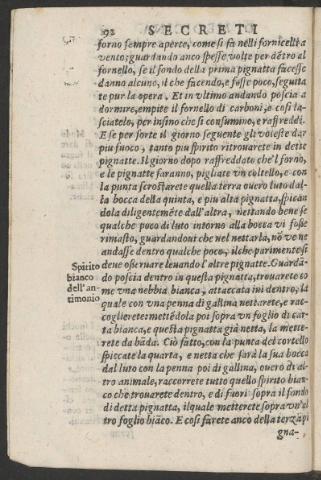 92 SECRETI
forno sempre aperte, come si fà nelli fornicelli a
vento; guardando anco spesse volte per dẽtro al
fornello, se il fondo della prima pignatta facesse
danno alcuno, il che facendo, e fosse poco, seguita
te pur la opera. Et in vltimo andando poscia a
dormire, empite il fornello di carboni, e cosi la-
sciatelo, per insino che si consumino, e raffreddi.
E se per sorte il giorno seguente gli voleste dar
piu fuoco, tanto piu spirito ritrouarete in dette
pignatte. Il giorno dopo raffreddato che'l forno,
e le pignatte faranno, pigliate vn coltello, e con
la punta scrostarete quella terra ouero luto dal-
la bocca della quinta, e piu alta pignatta, spiccan
dola diligentemẽte dall'altra, nettando bene se
qualche poco di luto intorno alla bocca vi fosse
rimasto, guardandoui che nel nettarla, nõ ve ne
andasse dentro qualche poco, ilche parimente si
deue osseruare leuando l'altre pignatte. Guardã-
do poscia dentro in questa pignatta, trouarete co
me vna nebbia bianca, attaccata iui dentro, la
quale con vna penna di gallina nettarete, e rac-
coglierete: mettẽdola poi sopra vn foglio di car-
ta bianca, e questa pignatta già netta, la mette-
rete da bãda. Ciò fatto, con la punta del cortello
spiccate la quarta, e netta che sarà la sua bocca
dal luto con la penna poi di gallina, ouero di al-
tro animale, raccorrete tutto quello spirito bian-
co che trouarete dentro, e di fuori sopra il fondo
di detta pignatta, ilquale metterete sopra vn'al
tro foglio biãco. E cosi farete anco della terza pi
gna-
Spirito
bianco
dell'an-
timonio